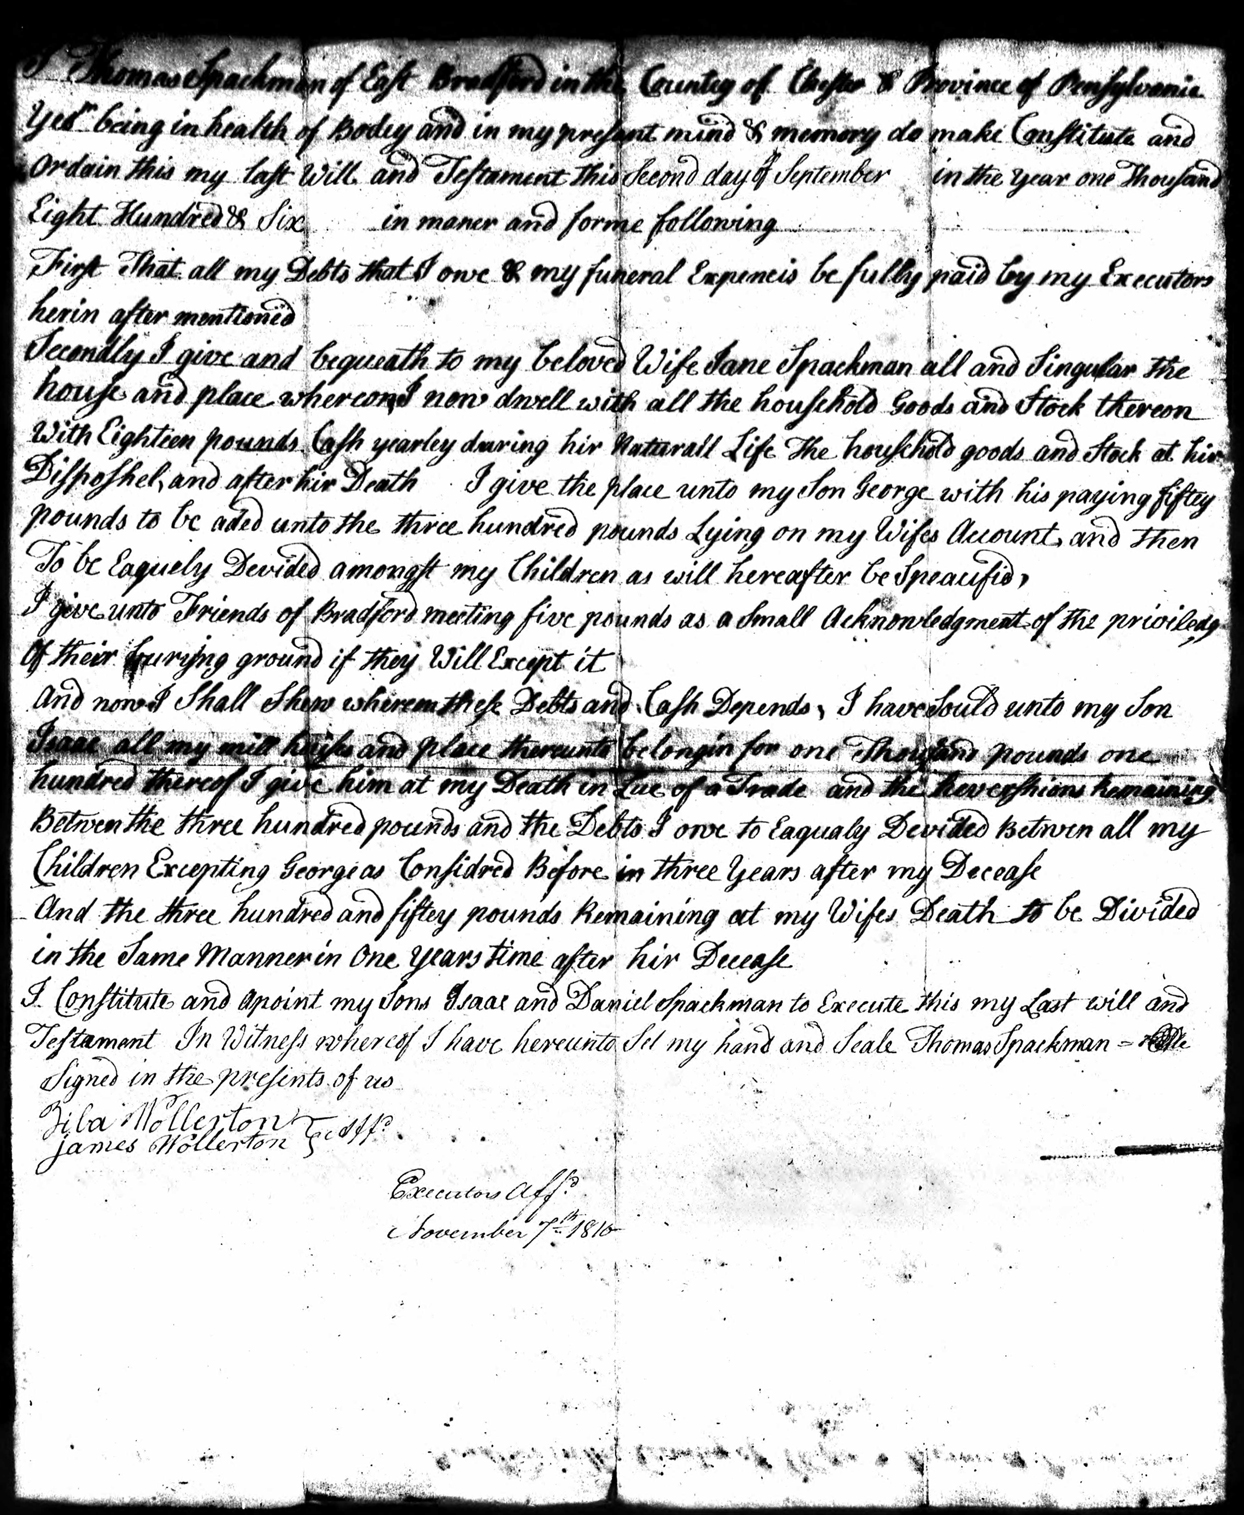 I Thomas Spackman of East Bradford in the Countey of Chester & Province of Pensylvania
Yeon being in health of Bodey and in my presant mind & memory do make Constitute and
ordain this my last Will and Testament this Second day of September in the year one Thousand
Eight Hundred & Six in maner and forme following
First That all my Debts that I owe & my funeral Expencis be fully paid by my Executors
herin after mentioned
Secondly I give and bequeath to my beloved Wife Jane Spackman all and Singular the
house and place whereon I now dwell with all the household Goods and Stock thereon
With Eighteen pounds Cash yearley during hir Naturall Life The household goods and Stock at hir
Disposhel, and after hir Death I give the place unto my Son George with his paying fiftey
pounds to be aded unto the three hundred pounds Lying on my Wifes Account, and then
To be Eaquely Devided amongst my Children as will hereafter be Speacifid,
I give unto Friends of Bradford meeting five pounds as a Small Acknowledgment of the priviledg
Of their burijng ground if they Will Except it
And now I Shall Shew wherein these Debts and Cash Depends, I have Sould unto my Son
Isaac all my mill and place thereunto belongin for one Thousand pounds one
hundred thereof I give him at my Death in Lue of a Trade and the Revershions Remaining
Betwen the three hundred pounds and the Debts I owe to Eaqualy Devided Betwen all my
Children Excepting George as Considred Before in three Years after my Decease
And the three hundred and fiftey pounds Remaining at my Wifes Death to be Divided
in the Same Manner in One Years time after hir Decease
I Constitute and apoint my Sons Isaac and Daniel Spackman to Execute this my Last will and
Testament In Witness whereof I have hereunto Set my hand and Seale Thomas Spackman =
Signed in the presents of us
Ziba Wollerton
James Wollerton } affd
Executors affd
November 7th 1810